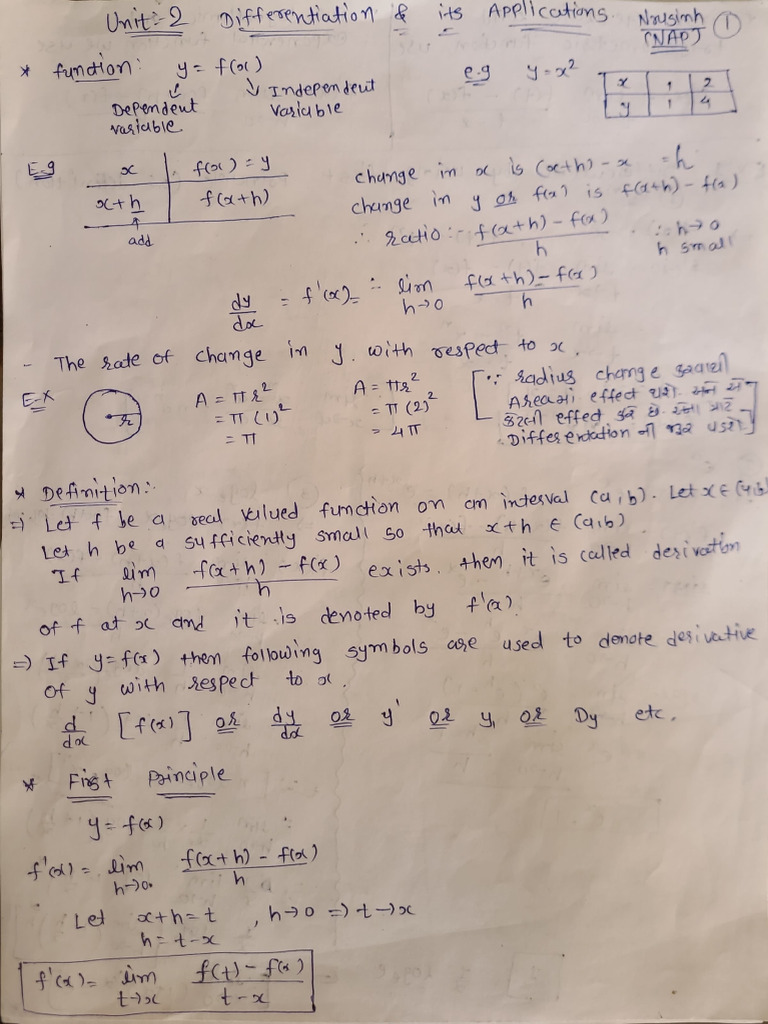 Unit:-2 Differentiation & its Applications. Nrusinh (NAP) 1
* function: y = f(x) e.g y = x² x 1 2
↓ Dependent variable ↓ Independent variable y 1 4
E.g x f(x) = y change in x is (x+h) - x = h
x+h f(x+h) change in y or f(x) is f(x+h) - f(x)
↑ add ∴ ratio :- f(x+h) - f(x) / h ∵ h→0 h small
dy/dx = f'(x) = ∴ lim h→0 f(x+h) - f(x) / h
- The rate of change in y. with respect to x.
E-x r A = πr² A = πr² [∵ radius change કરવાથી
= π(1)² = π(2)² Areaમાં effect થશે. અને
= π = 4π કેટલી effect માટે
Differentation ની જરૂર પડશે]
* Definition:-
⇒ Let f be a real valued function on an interval (a,b). Let x ∈ (a,b)
Let h be a sufficiently small so that x+h ∈ (a,b)
If lim h→0 f(x+h) - f(x) / h exists. then it is called derivation
of f at x and it is denoted by f'(x)
⇒ If y=f(x) then following symbols are used to denote derivative
of y with respect to x.
d/dx [f(x)] or dy/dx or y' or y₁ or Dy etc.
* First principle
y = f(x)
f'(x) = lim h→0 f(x+h) - f(x) / h
Let x+h = t , h→0 ⇒ t→x
h = t-x
f'(x) = lim t→x f(t) - f(x) / t-x